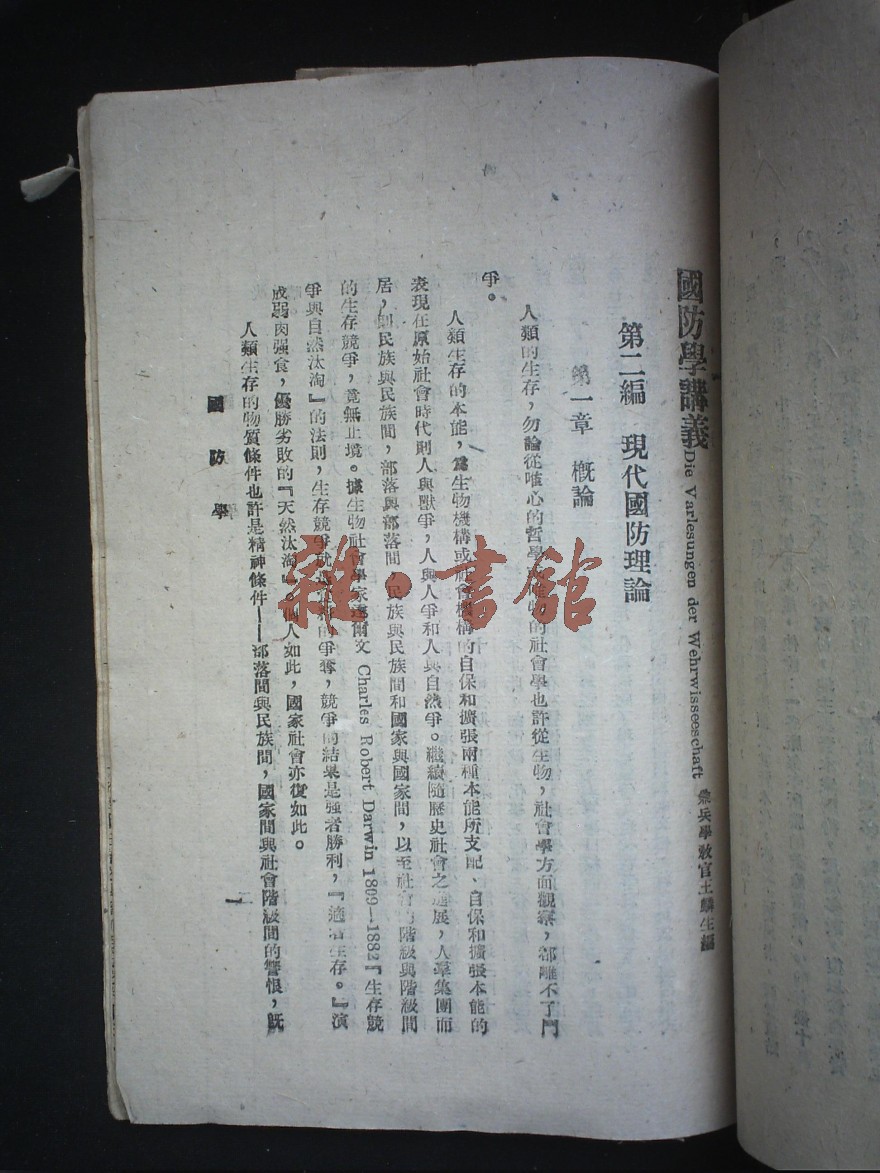 國防學講義 Die Varlesungen der Wehrwisseeschaft 兼兵學敎官王麟生編
第二編 現代國防理論
第一章 槪論
人類的生存，勿論從唯心的哲學或唯物的社會學也許從生物，社會學方面觀察，都離不了鬥
爭。
人類生存的本能，爲生物機構或社會機構的自保和擴張兩種本能所支配、自保和擴張本能的
表現在原始社會時代則人與獸爭，人與人爭和人與自然爭。繼續隨歷史社會之進展，人羣集團而
居，則民族與民族間，部落與部落間，民族與民族間和國家與國家間，以至社會的階級與階級間
的生存競爭，竟無止境。據生物社會學家達爾文 Charles Robert Darwin 1809—1882『生存競
爭與自然汰淘』的法則，生存競爭就是的爭奪，競爭的結果是强者勝利，『適者生存。』演
成弱肉强食，優勝劣敗的『天然汰淘』。個人如此，國家社會亦復如此。
人類生存的物質條件也許是精神條件——部落間與民族間，國家間與社會階級間的讐恨，旣
國防學
一
雜·書館